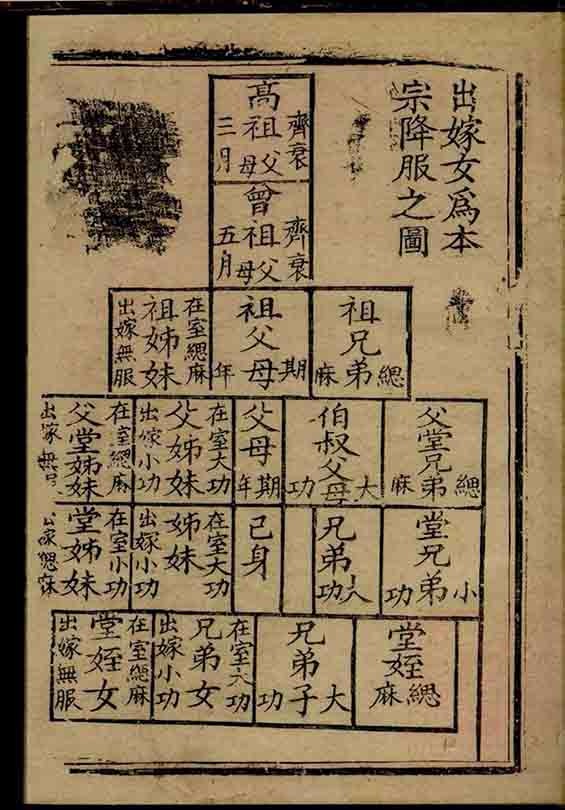 出嫁女爲本
宗降服之圖
齊衰
高祖父母
三月
齊衰
曾祖父母
五月
緦
祖兄弟
麻
期
祖父母
年
在室緦麻
祖姊妹
出嫁無服
緦
父堂兄弟
麻
大
伯叔父母
功
期
父母
年
在室大功
父姊妹
出嫁小功
在室緦麻
父堂姊妹
出嫁無
小
堂兄弟
功
大
兄弟
功
己身
在室大功
姊妹
出嫁小功
在室小功
堂姊妹
嫁緦麻
緦
堂姪
麻
大
兄弟子
功
在室大功
兄弟女
出嫁小功
在室緦麻
堂姪女
出嫁無服